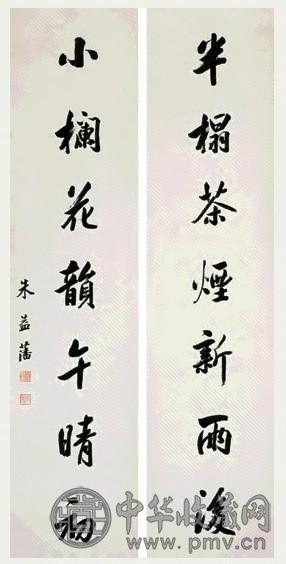 半榻茶煙新雨後
小欄花韻午晴初
朱益藩
中华收藏网
www.pmv.cn